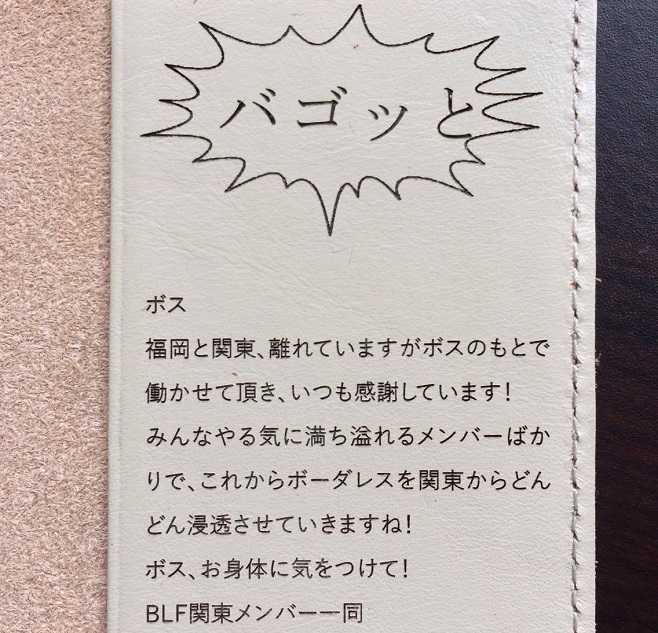 バゴッと
ボス
福岡と関東、離れていますがボスのもとで
働かせて頂き、いつも感謝しています！
みんなやる気に満ち溢れるメンバーばか
りで、これからボーダレスを関東からどん
どん浸透させていきますね！
ボス、お身体に気をつけて！
BLF関東メンバー一同